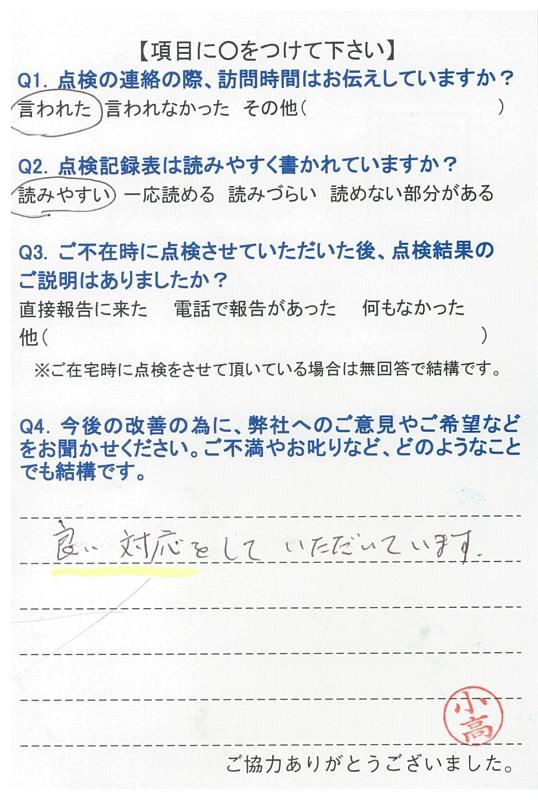 【項目に〇をつけて下さい】
Q1. 点検の連絡の際、訪問時間はお伝えしていますか？
言われた 言われなかった その他( )
Q2. 点検記録表は読みやすく書かれていますか？
読みやすい 一応読める 読みづらい 読めない部分がある
Q3. ご不在時に点検させていただいた後、点検結果の
ご説明はありましたか？
直接報告に来た 電話で報告があった 何もなかった
他( )
※ご在宅時に点検をさせて頂いている場合は無回答で結構です。
Q4. 今後の改善の為に、弊社へのご意見やご希望など
をお聞かせください。ご不満やお叱りなど、どのようなこと
でも結構です。
良い対応をしていただいています.
小高
ご協力ありがとうございました。